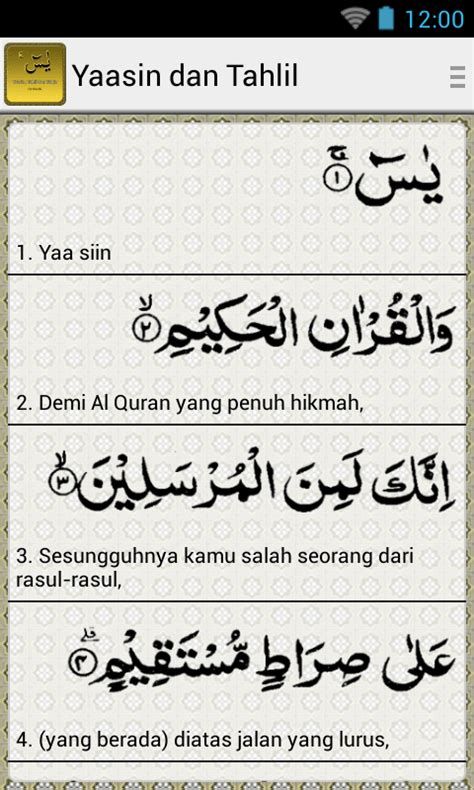 12:00
يٰسٓ
Yaasin dan Tahlil
يٰسٓ ۚ ١
1. Yaa siin
وَالْقُرْاٰنِ الْحَكِيْمِ ۙ ٢
2. Demi Al Quran yang penuh hikmah,
اِنَّكَ لَمِنَ الْمُرْسَلِيْنَ ۙ ٣
3. Sesungguhnya kamu salah seorang dari
rasul-rasul,
عَلٰى صِرَاطٍ مُّسْتَقِيْمٍ ۗ ٤
4. (yang berada) diatas jalan yang lurus,